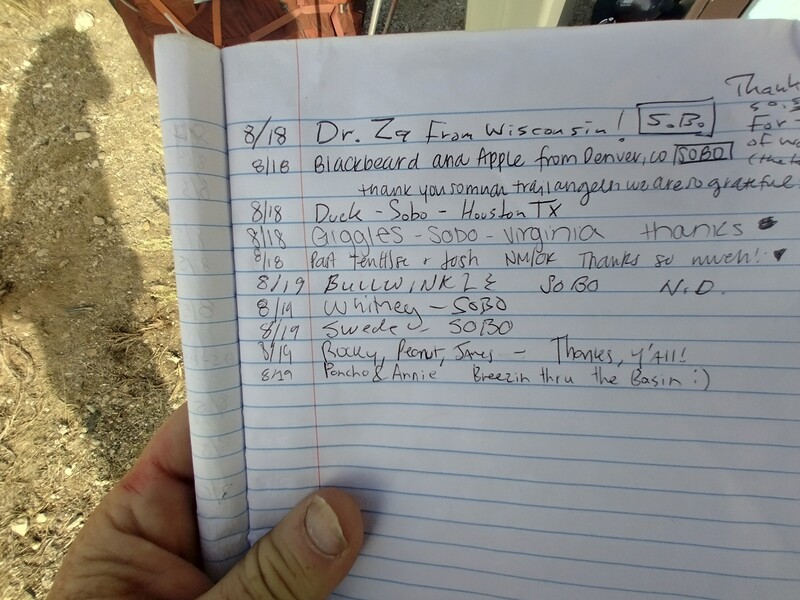 Thank
so.s
For
of wa
(the t
8/18 Dr. Zq From Wisconsin! S.B.
8/18 Blackbeard and Apple from Denver, CO SOBO
thank you so much trail angels we are so grateful
8/18 Duck - Sobo - Houston TX
8/18 Giggles - Sobo - Virginia thanks
8/18 Past & Josh NM/OK Thanks so much!
8/19 BULLWINKLE SOBO N.D.
8/19 Whitney - SOBO
8/19 Swede - SOBO
8/19 Rocky, Peanut, - Thanks, y'All!
8/19 Poncho & Annie Breezin thru the Basin :)